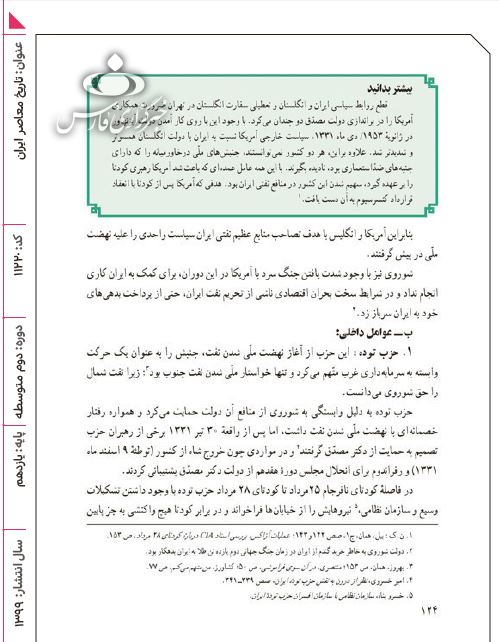 عنوان: تاریخ معاصر ایران
کد: ۱۱۲۲۰
دوره: دوم متوسطه
پایه: یازدهم
سال انتشار: ۱۳۹۹
بیشتر بدانید
قطع روابط سیاسی ایران و انگلستان و تعطیلی سفارت انگلستان در تهران ضرورت همکاری
آمریکا را در براندازی دولت مصدّق دو چندان می‌کرد. با وجود این با روی کار آمدن
در ژانویهٔ ۱۹۵۳/ دی ماه ۱۳۳۱، سیاست خارجی آمریکا نسبت به ایران با دولت انگلستان همسوتر
و شدیدتر شد. علاوه بر این، هر دو کشور نمی‌توانستند، جنبش‌های ملّی در خاورمیانه را که دارای
جنبه‌های ضدّاستعماری بود، نادیده بگیرند. با این همه عامل عمده‌ای که باعث شد آمریکا رهبری کودتا
را بر عهده گیرد، سهیم شدن این کشور در منافع نفتی ایران بود. هدفی که آمریکا پس از کودتا با انعقاد
قرارداد کنسرسیوم به آن دست یافت.۱
بنابراین آمریکا و انگلیس با هدف تصاحب منابع عظیم نفتی ایران سیاست واحدی را علیه نهضت
ملّی در پیش گرفتند.
شوروی نیز با وجود شدت یافتن جنگ سرد با آمریکا در این دوران، برای کمک به ایران کاری
انجام نداد و در شرایط سخت بحران اقتصادی ناشی از تحریم نفت ایران، حتی از پرداخت بدهی‌های
خود به ایران سرباز زد.۲
ب ــ عوامل داخلی:
۱. حزب توده : این حزب از آغاز نهضت ملّی شدن نفت، جنبش را به عنوان یک حرکت
وابسته به سرمایه‌داری غرب متّهم می‌کرد و تنها خواستار ملّی شدن نفت جنوب بود۳؛ زیرا نفت شمال
را حق شوروی می‌دانست.
حزب توده به دلیل وابستگی به شوروی از منافع آن دولت حمایت می‌کرد و همواره رفتار
خصمانه‌ای با نهضت ملّی شدن نفت داشت، اما پس از واقعهٔ ۳۰ تیر ۱۳۳۱ برخی از رهبران حزب
تصمیم به حمایت از دکتر مصدّق گرفتند۴ و در مواردی چون خروج شاه از کشور (توطئهٔ ۹ اسفند ماه
۱۳۳۱) و رفراندوم برای انحلال مجلس دورهٔ هفدهم از دولت دکتر مصدّق پشتیبانی کردند.
در فاصلهٔ کودتای نافرجام ۲۵ مرداد تا کودتای ۲۸ مرداد حزب توده با وجود داشتن تشکیلات
وسیع و سازمان نظامی،۵ نیروهایش را از خیابان‌ها فراخواند و در برابر کودتا هیچ واکنشی به جز پایین
۱. ن.ک : بیل، همان، ج۱، صص ۱۲۴ و ۱۴۳؛ عملیات آژاکس، بررسی اسناد CIA دربارهٔ کودتای ۲۸ مرداد، ص ۱۵۳.
۲. دولت شوروی به خاطر خرید گندم از ایران در زمان جنگ جهانی دوم یازده تن طلا به ایران بدهکار بود.
۳. بهروز، همان، ص ۱۵۳؛ منتصری، در آن سوی فراموشی، ص ۵۰؛ کشاورز، من متهم می‌کنم، ص ۷۷.
۴. امیر خسروی، نظر از درون به نقش حزب توده ایران، صص ۲۳۹ــ۲۴۱.
۵. خسرو پناه، سازمان نظامی یا سازمان افسران حزب تودهٔ ایران.
۱۲۴